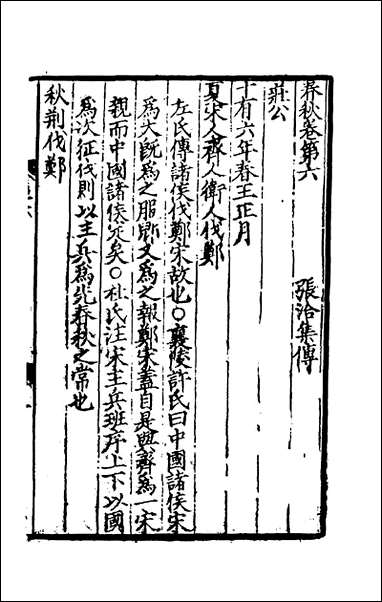 春秋卷第六 張洽集傳
莊公
十有六年春王正月
夏宋人齊人衛人伐鄭
左氏傳諸侯伐鄭宋故也〇襄陵許氏曰中國諸侯宋
為大既為之服郳又為之報鄭宋蓋自是與齊為一宋
親而中國諸侯定矣〇杜氏注宋主兵班序上下以國
為次征伐則以主兵為先春秋之常也
秋荆伐鄭